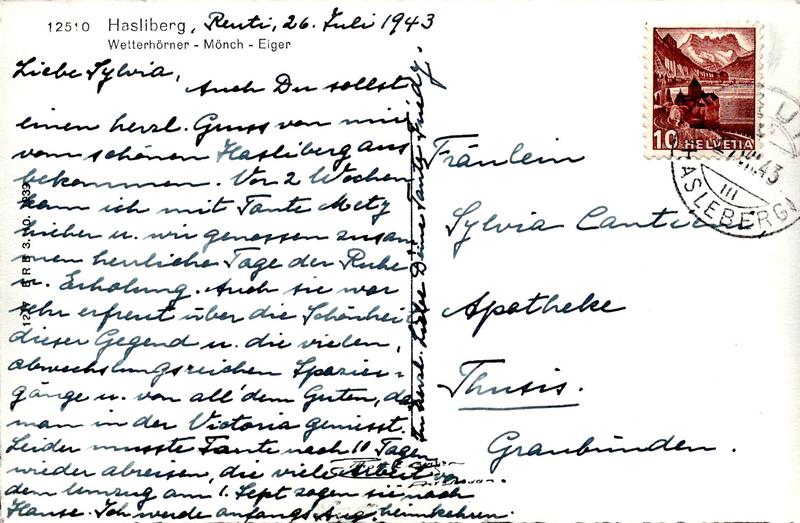 12510 Hasliberg, Reuti, 26. Juli 1943
Wetterhörner - Mönch - Eiger
Liebe Sylvia,
Auch Du sollst
einen herzl. Gruss von mir
vom schönen Hasliberg aus
bekommen. Vor 2 Wochen
kam ich mit Tante Metz
hieher u. wir genossen zusam
men herrliche Tage der Ruhe
u. Erholung. Auch sie war
sehr erfreut über die Schönheit
dieser Gegend u. die vielen,
abwechslungsreichen Spazier-
gänge u. von all' dem Guten, das
man in der Victoria geniesst.
Leider musste Tante nach 10 Tagen
wieder abreisen, die viele Arbeit
dem Umzug am 1. Sept zogen sie nach
Hause. Ich werde anfangs Aug. heimkehren.
herzl. Liebe Deine Tante Friedy.
Fräulein
Sylvia
Apotheke
Thusis.
Graubünden.
10 HELVETIA
HASLEBERG